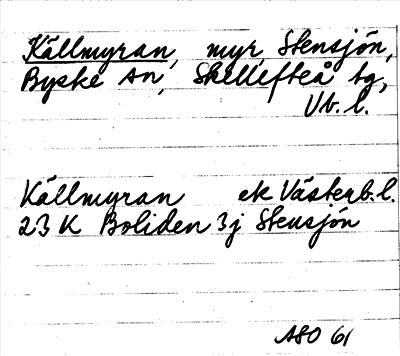 Källmyran, myr, Stensjön,
Byske sn, Skellefteå tg,
Vb. l.
Källmyran ek Västerb. l.
23 K Boliden 3j Stensjön
ASO 61